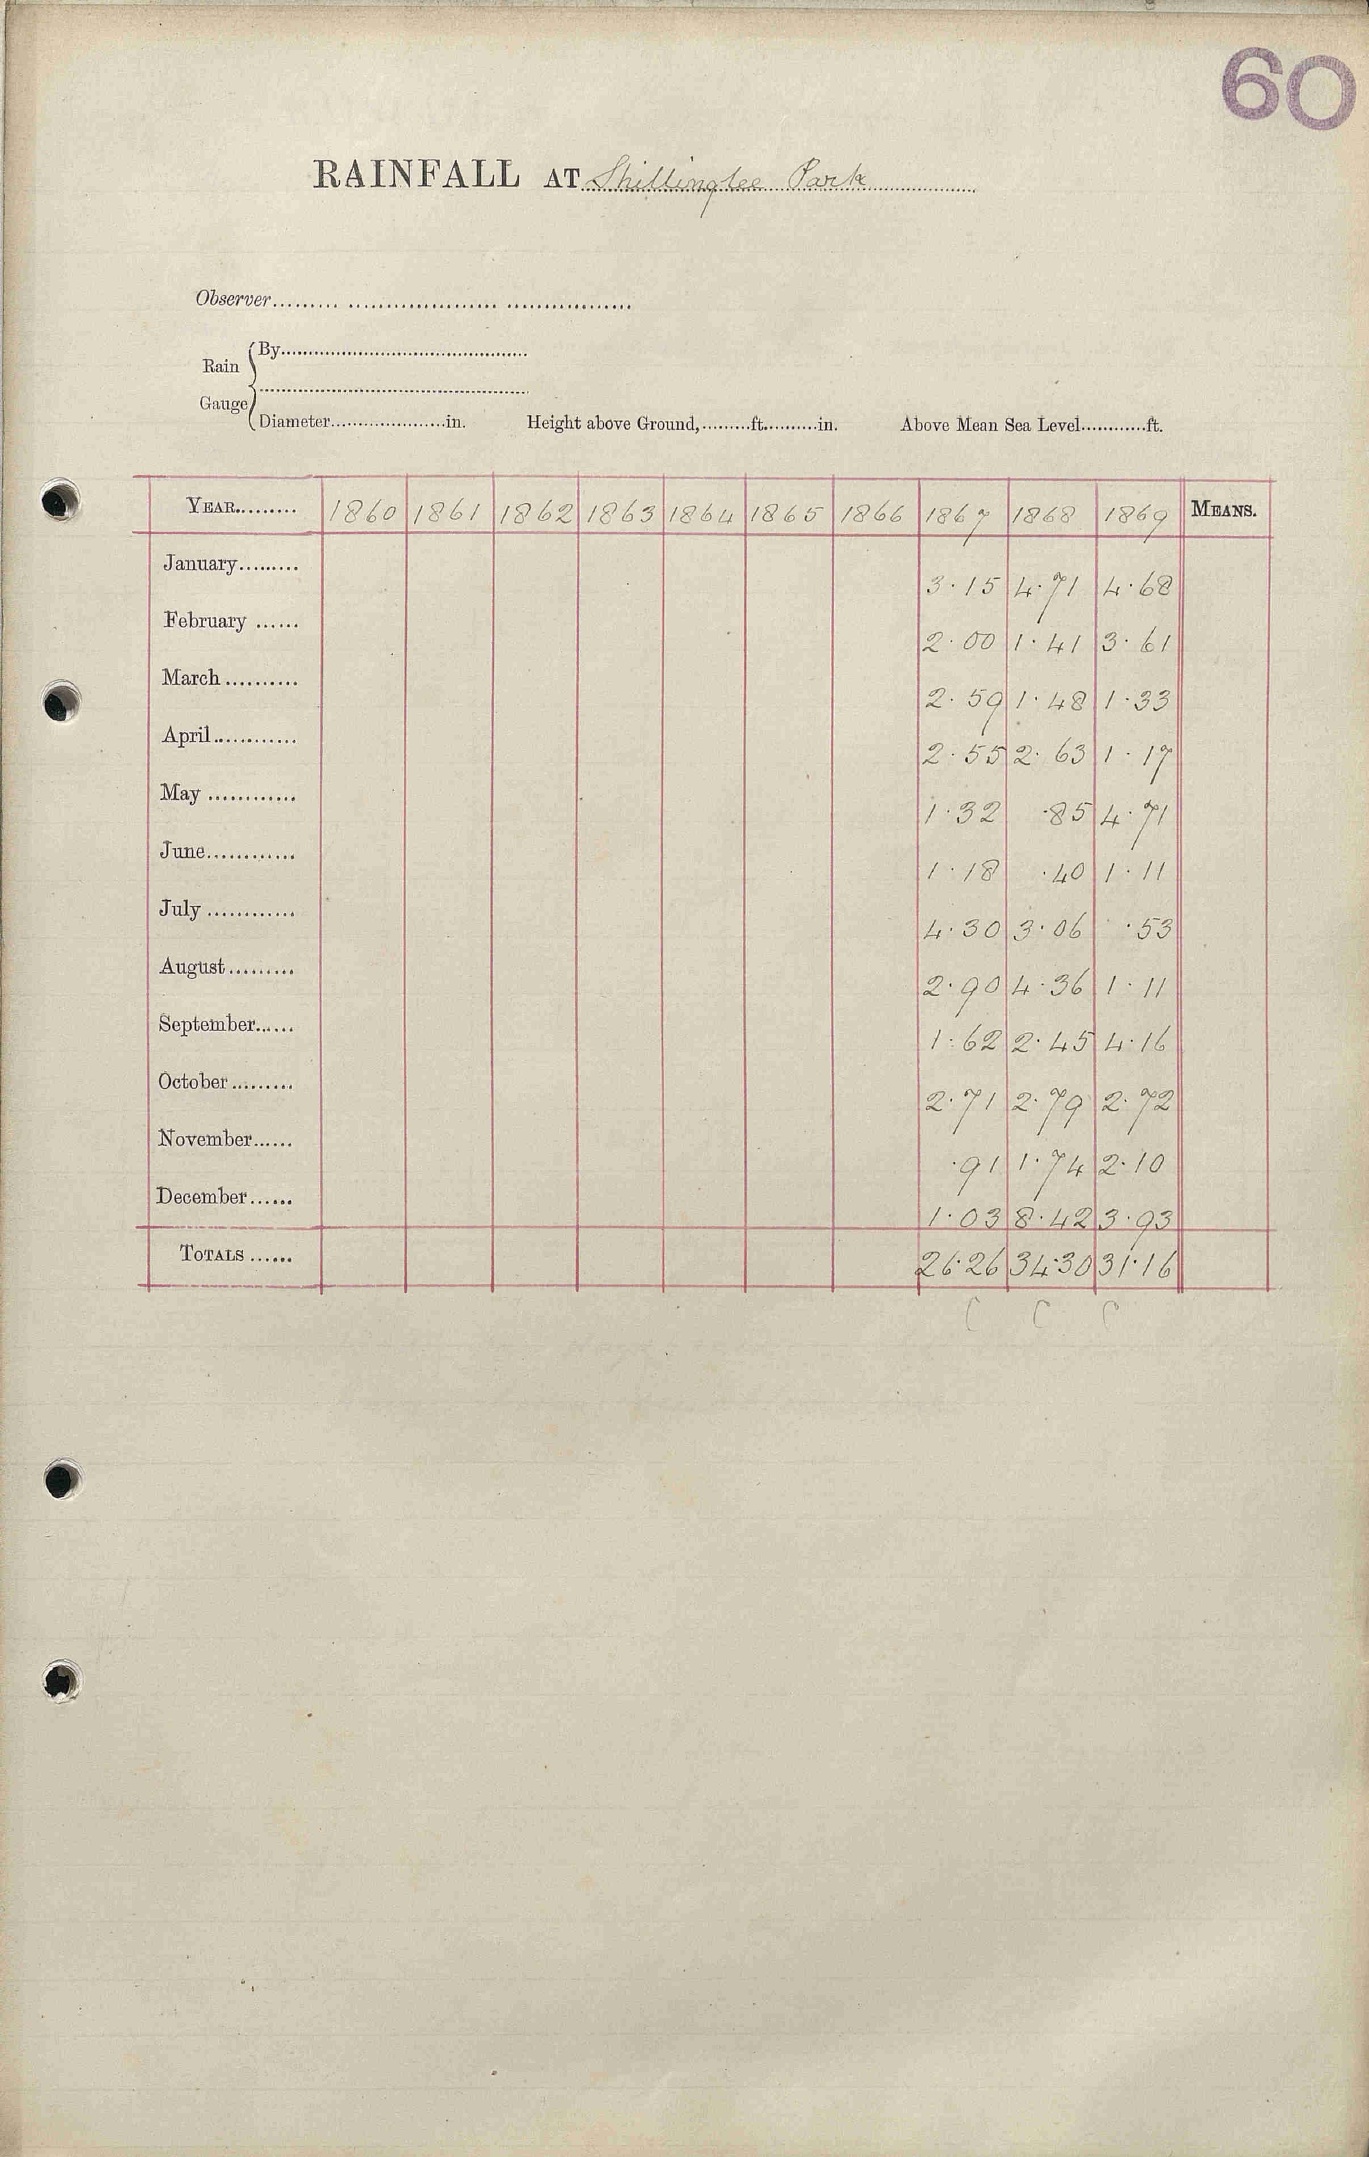 60
RAINFALL AT Shillinglee Park
Observer
By
Rain
Gauge
Diameter in. Height above Ground, ft. in. Above Mean Sea Level ft.
YEAR 1860 1861 1862 1863 1864 1865 1866 1867 1868 1869 MEANS.
January 3.15 4.71 4.68
February 2.00 1.41 3.61
March 2.59 1.48 1.33
April 2.55 2.63 1.17
May 1.32 .85 4.71
June 1.18 .40 1.11
July 4.30 3.06 .53
August 2.90 4.36 1.11
September 1.62 2.45 4.16
October 2.71 2.79 2.72
November .91 1.74 2.10
December 1.03 8.42 3.93
TOTALS 26.26 34.30 31.16
C C C